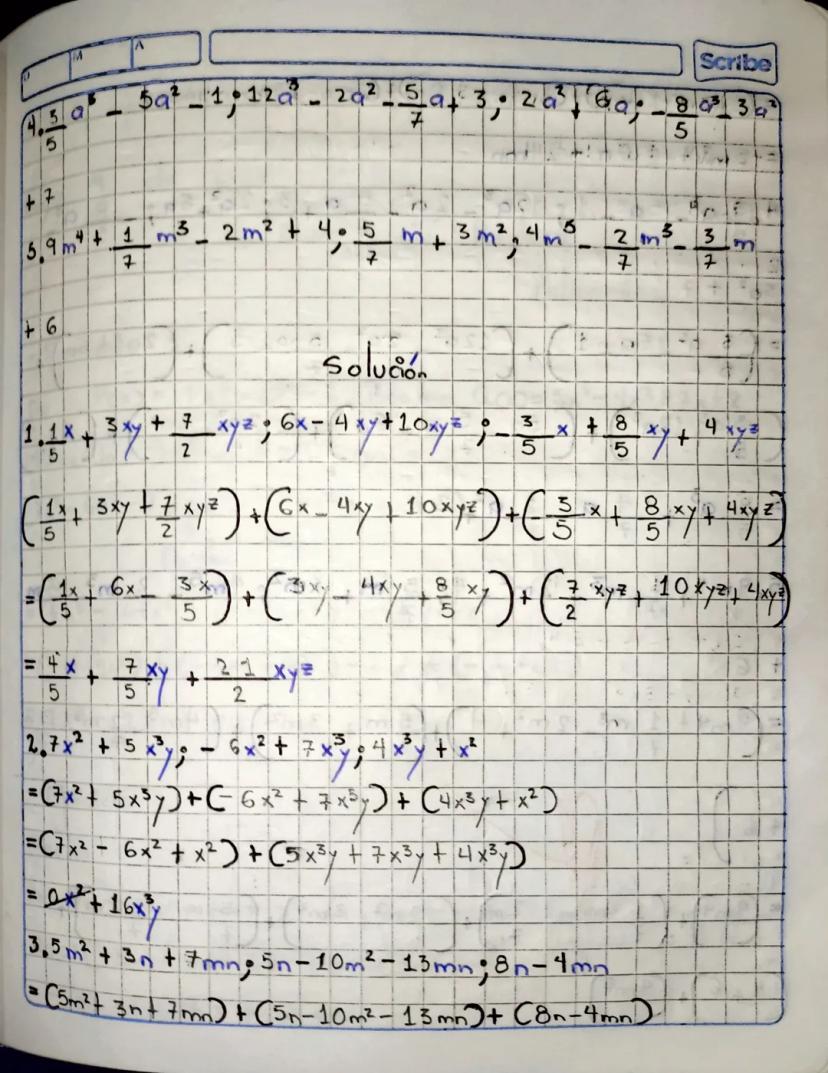 D M A Scribe
4. 3/5 a³ - 5a² - 1; 12a³ - 2a² - 5/7 a + 3; 2a² + 6a; - 8/5 a³ - 3a²
+ 7
5. 9m⁴ + 1/7 m³ - 2m² + 4; 5/7 m + 3m²; 4m⁵ - 2/7 m³ - 3/7 m
+ 6
Solución
1. 1/5 x + 3xy + 7/2 xyz; 6x - 4xy + 10xyz; - 3/5 x + 8/5 xy + 4xyz
(1x/5 + 3xy + 7/2 xyz) + (6x - 4xy + 10xyz) + (- 3/5 x + 8/5 xy + 4xyz)
= (1x/5 + 6x - 3x/5) + (3xy - 4xy + 8/5 xy) + (7/2 xyz + 10xyz + 4xyz)
= 4/5 x + 7/5 xy + 21/2 xyz
2. 7x² + 5x³y; - 6x² + 7x³y; 4x³y + x²
= (7x² + 5x³y) + (- 6x² + 7x³y) + (4x³y + x²)
= (7x² - 6x² + x²) + (5x³y + 7x³y + 4x³y)
= 0x² + 16x³y
3. 5m² + 3n + 7mn; 5n - 10m² - 13mn; 8n - 4mn
= (5m² + 3n + 7mn) + (5n - 10m² - 13mn) + (8n - 4mn)